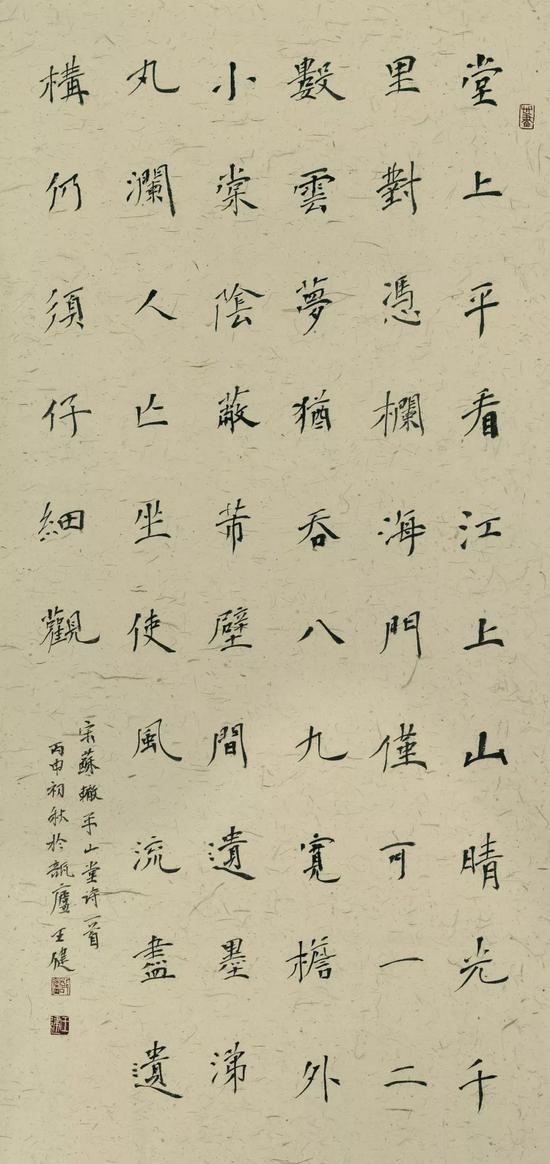 堂上平看江上山晴光千
里對憑欄海門僅可一二
數雲夢猶吞八九寬檐外
小棠陰蔽芾壁間遺墨涕
丸瀾人亡坐使風流盡遺
構仍須仔細觀
宋蘇轍平山堂诗一首
丙申初秋於瓻廬王健